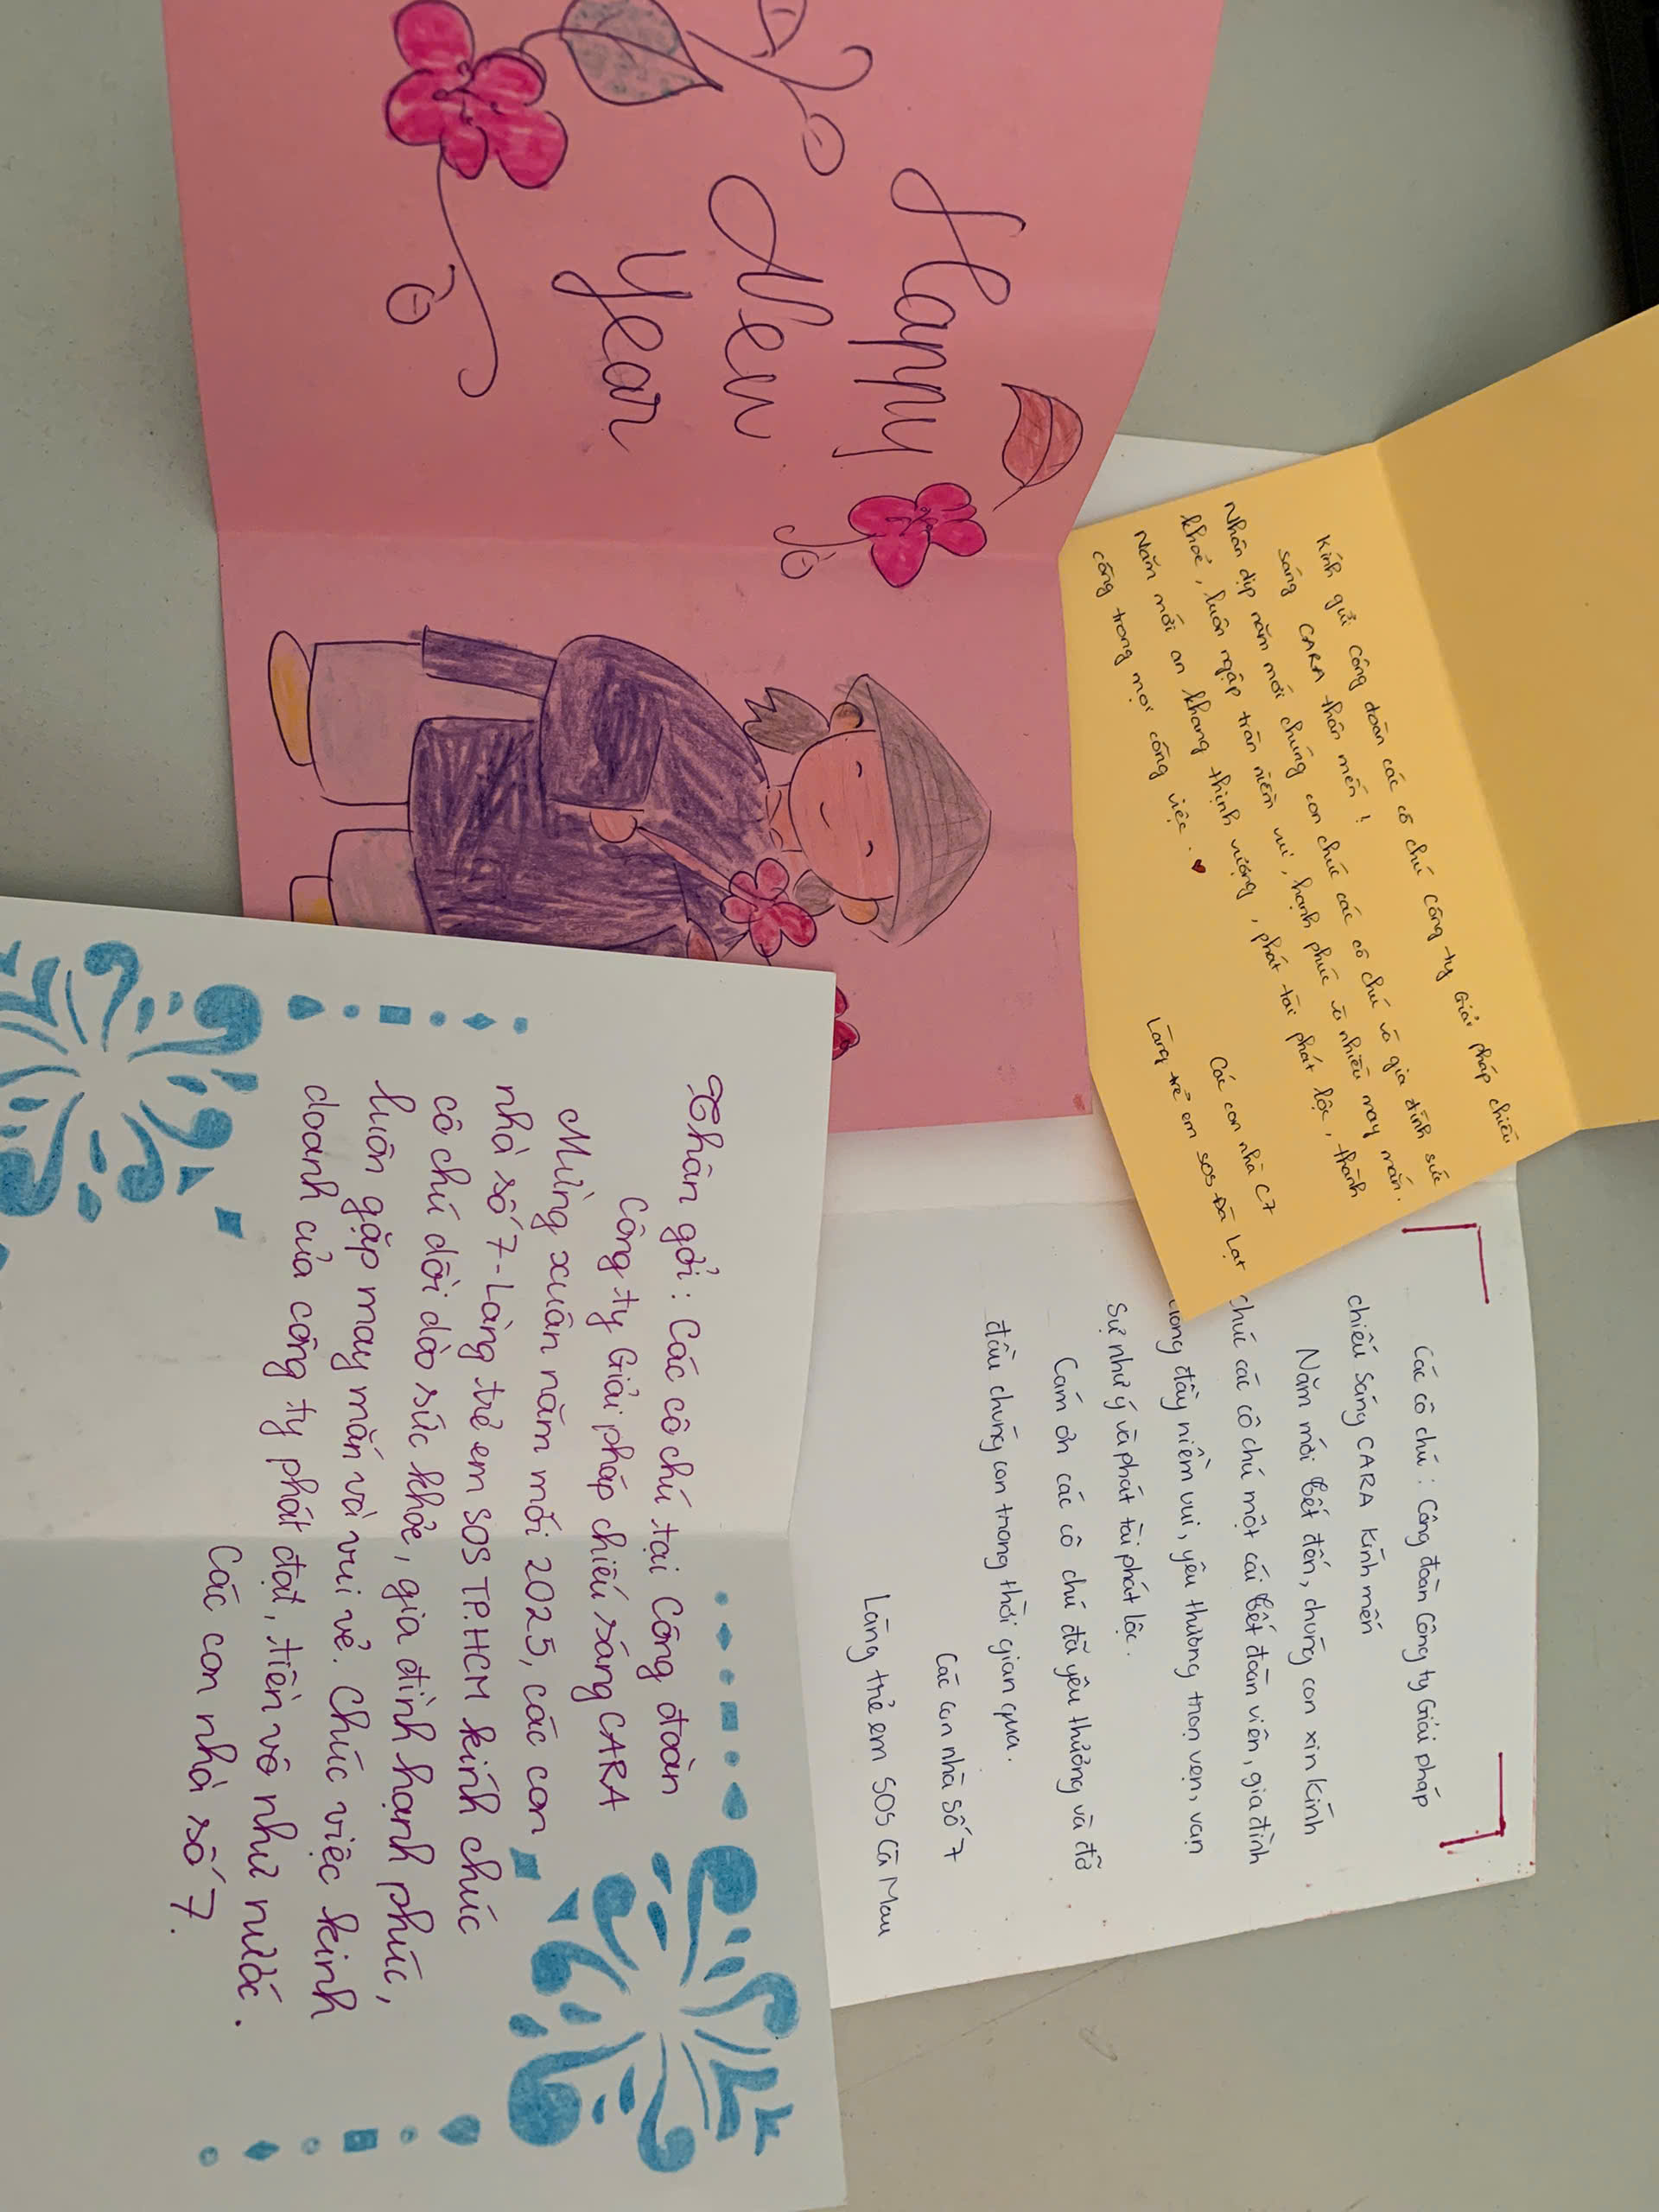 Kính gửi công đoàn các cô chú công ty Giải pháp chiếu
sáng CARA thân mến !
Nhân dịp năm mới chúng con chúc các cô chú và gia đình sức
khoẻ, luôn ngập tràn niềm vui, hạnh phúc và nhiều may mắn.
Năm mới an khang thịnh vượng, phát tài phát lộc, thành
công trong mọi công việc.
Các con nhà C7
Làng trẻ em SOS Đà Lạt
Các cô chú : Công đoàn Công ty Giải pháp
chiếu Sáng CARA Kính mến
Năm mới Tết đến, chúng con xin Kính
chúc các cô chú một cái Tết đoàn viên, gia đình
đầy niềm vui, yêu thương trọn vẹn, vạn
Sự như ý và phát tài phát lộc.
Cám ơn các cô chú đã yêu thương và đỡ
đầu chúng con trong thời gian qua.
Các con nhà Số 7
Làng trẻ em SOS Cà Mau
Happy
New
Year
Thân gởi: Các cô chú tại Công đoàn
Công ty Giải pháp chiếu sáng CARA
Mừng xuân năm mới 2025, các con
nhà số 7-Làng trẻ em SOS TP.HCM kính chúc
cô chú dồi dào sức khỏe, gia đình hạnh phúc,
luôn gặp may mắn và vui vẻ. Chúc việc kinh
doanh của công ty phát đạt, tiền vô như nước.
Các con nhà số 7.